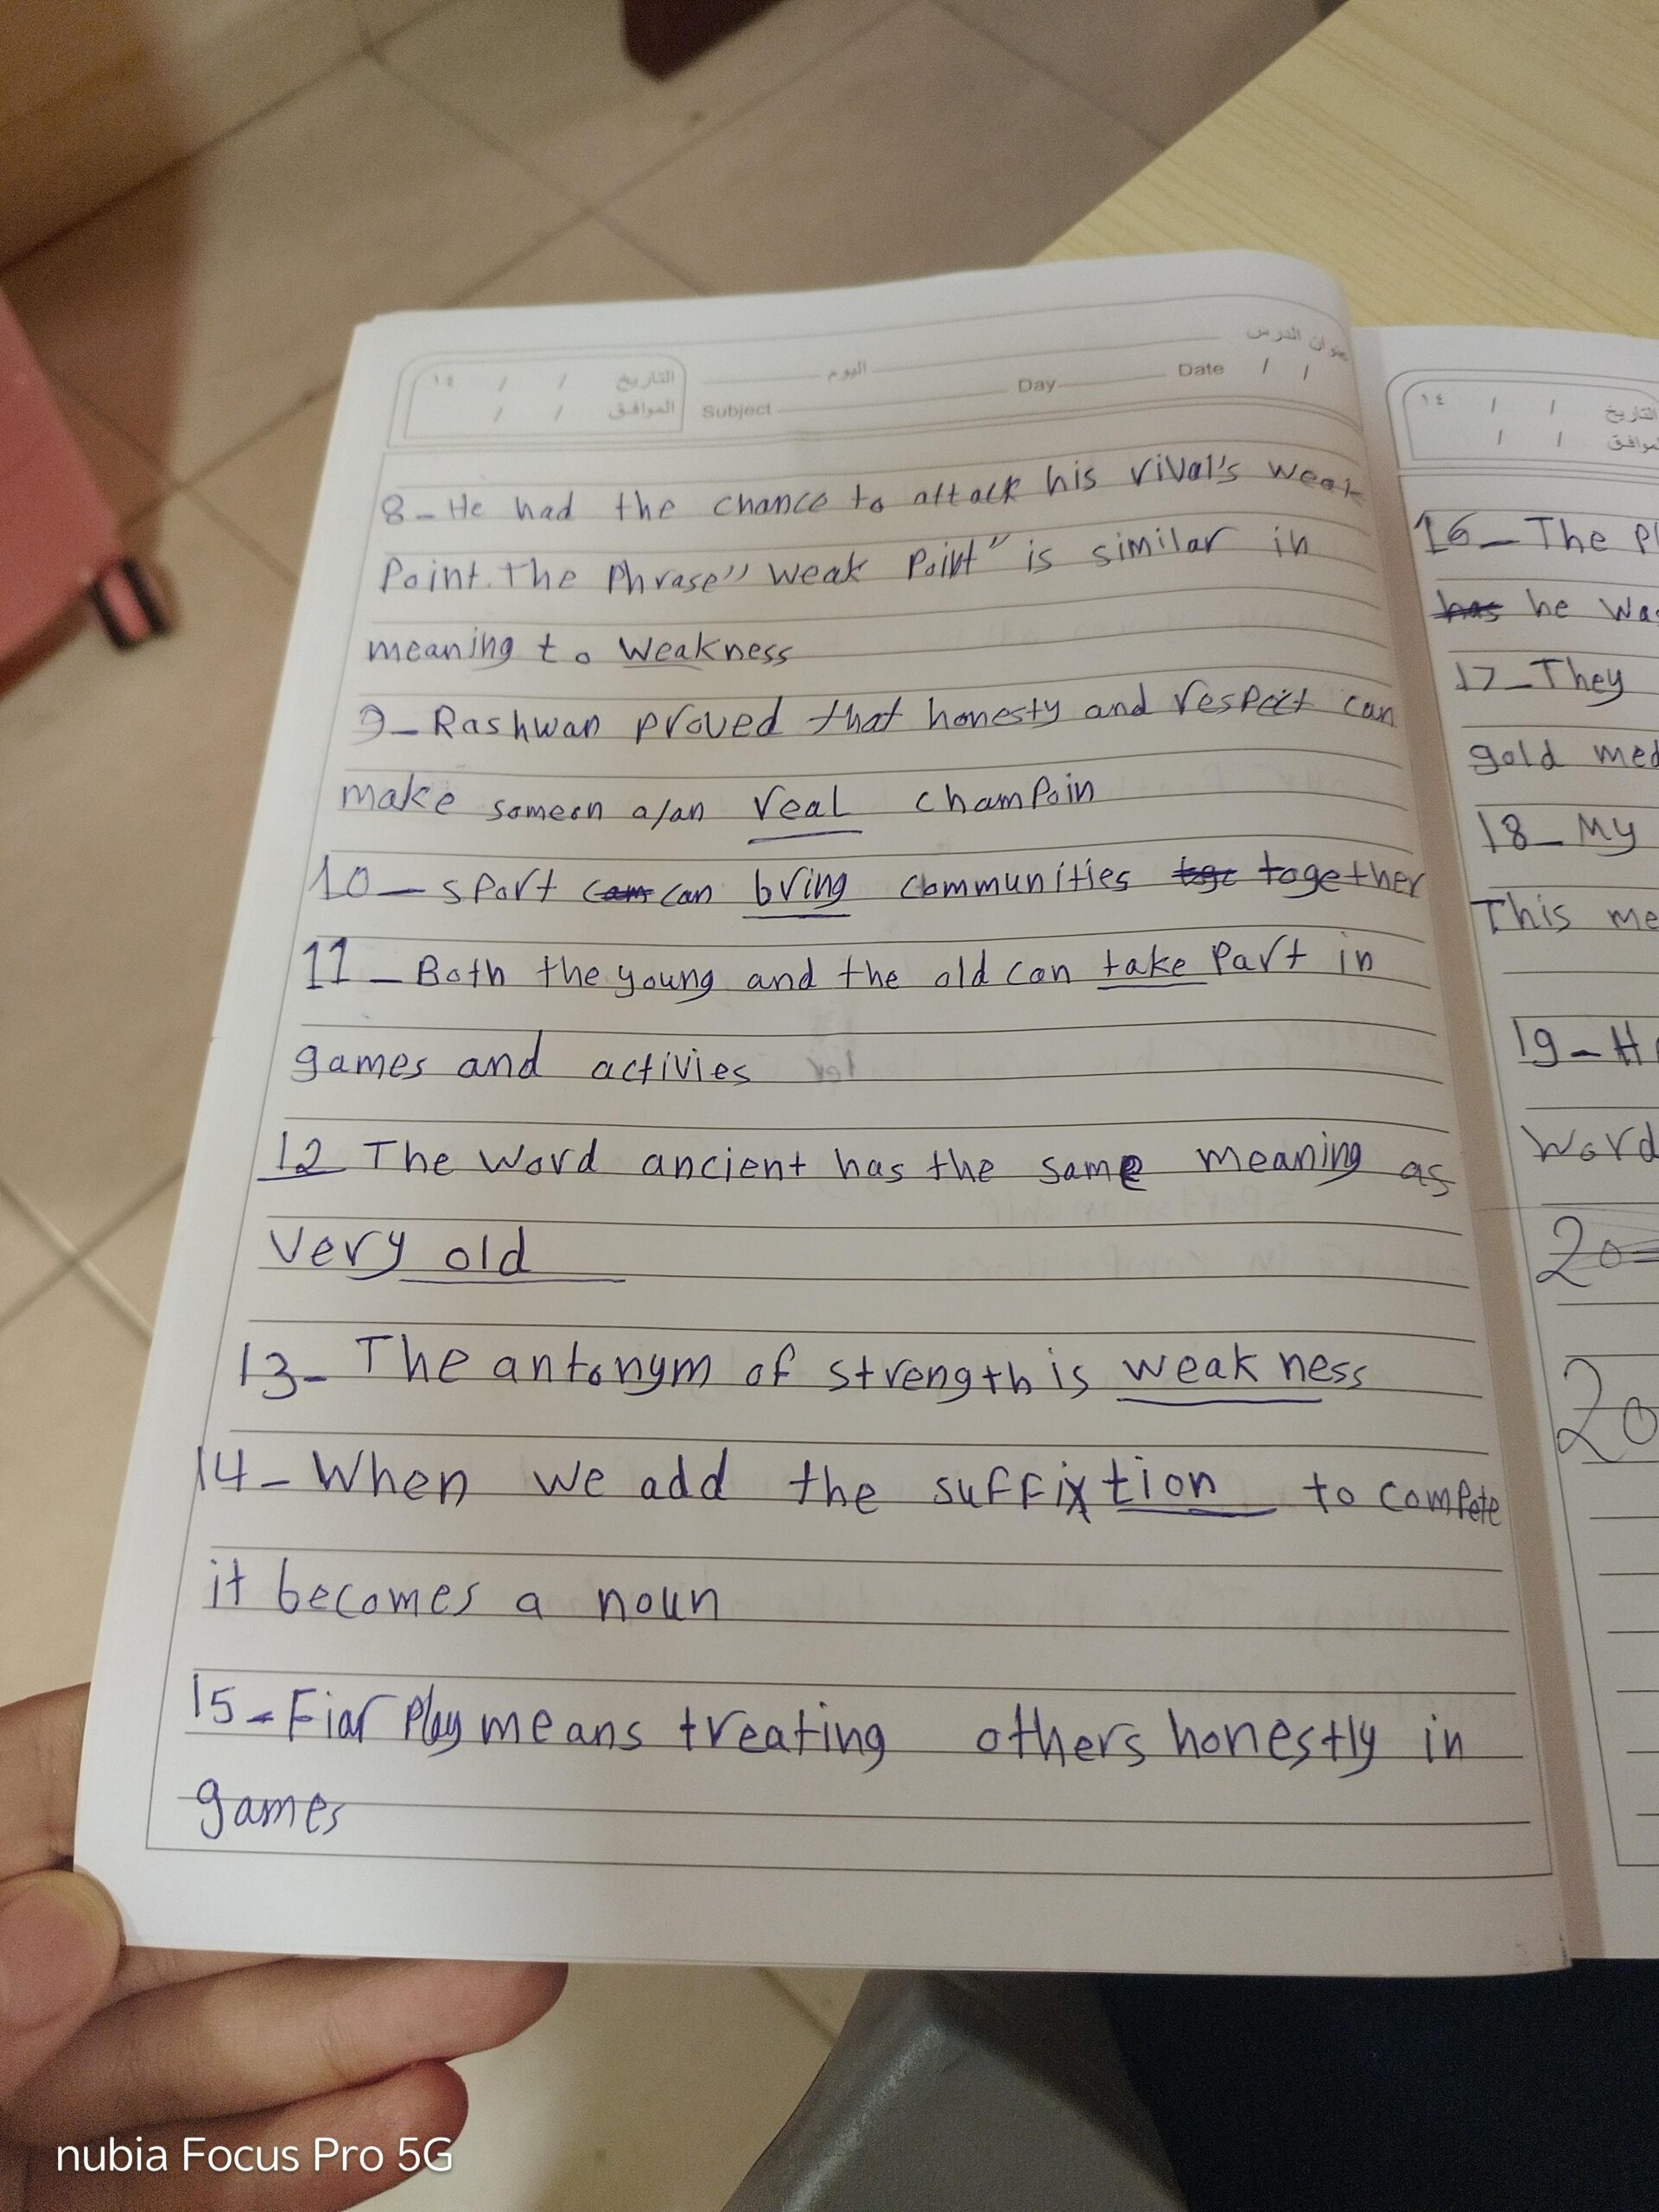 عنوان الدرس
التاريخ / / ١٤ اليوم
الموافق / / Subject Day Date / /
8- He had the chance to attack his rival's weak
Point. The Phrase" weak Point" is similar in
meaning to weakness
9- Rashwan proved that honesty and respect can
make someon a/an real champoin
10- sport cam can bring communities toge together
11- Both the young and the old can take part in
games and activies
12 The word ancient has the same meaning as
very old
13- The antonym of strength is weakness
14- When we add the suffix tion to compete
it becomes a noun
15- Fiar Play means treating others honestly in
games
التاريخ / / ١٤
الموافق / /
16- The
has he
17- They
gold
18- My
This
19-
word
20
20
nubia Focus Pro 5G